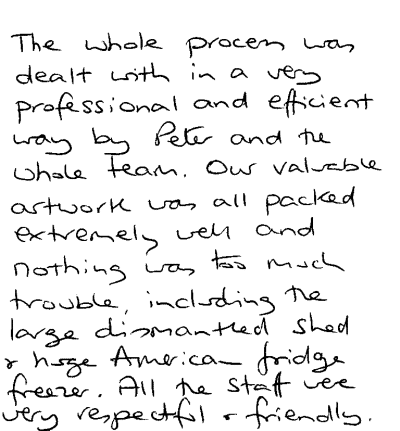 The whole process was
dealt with in a very
professional and efficient
way by Peter and the
whole team. Our valuable
artwork was all packed
extremely well and
nothing was too much
trouble, including the
large dismantled shed
& huge American fridge
freezer. All the staff were
very respectful & friendly.